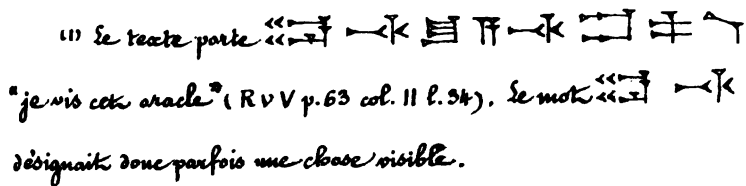 (1) Le texte porte
"je vis cet oracle" (R v V p.63 col. II l.34). Le mot
désignait donc parfois une chose visible.